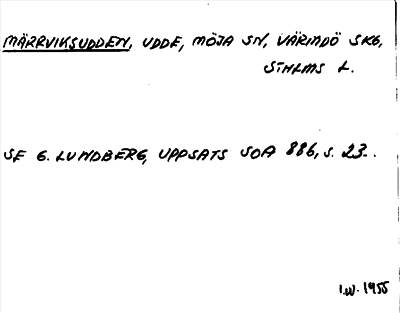 MÄRRVIKSUDDEN, UDDE, MÖJA SN, VÄRMDÖ SKG,
STHLMS L.
SE G. LUNDBERG, UPPSATS SOA 886, S. 23.
I.W. 1955